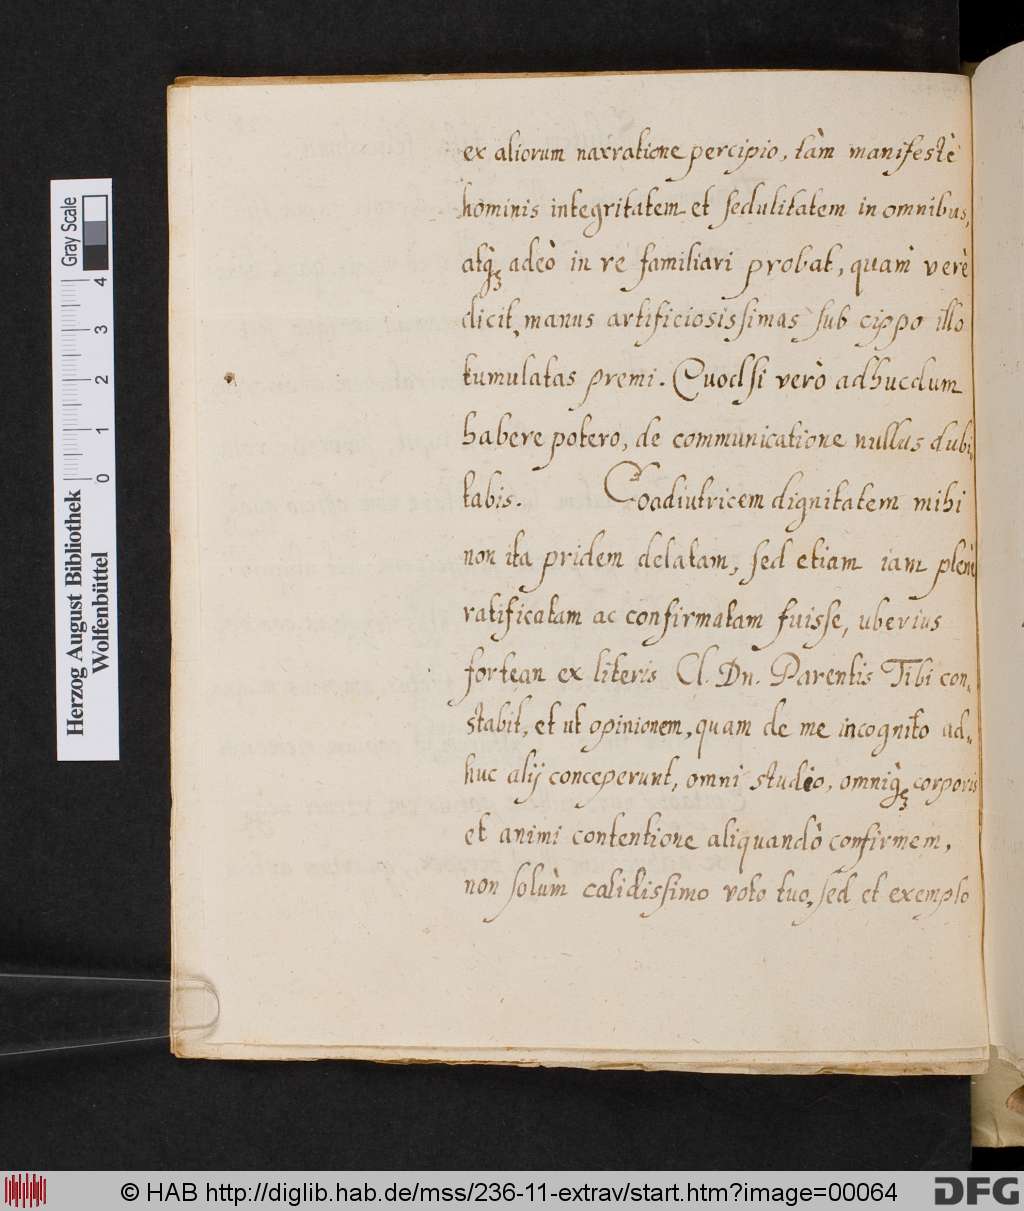 ex aliorum narratione percipio, tàm manifestè
hominis integritatem et sedulitatem in omnibus,
atq́ꝫ adeò in re familiari probat, quàm verè
dicit, manus artificiosissimas sub cippo illo
tumulatas premi. Quodsi verò adhucdum
habere potero, de communicatione nullus dubi
tabis. Coadiutricem dignitatem mihi
non ita pridem delatam, sed etiam iam plenè
ratificatam ac confirmatam fuisse, uberius
fortean ex literis Cl. Dn. Parentis Tibi con„
stabit, et ut opinionem, quam de me incognito ad„
huc alij conceperunt, omni studio, omniq́ꝫ corporis
et animi contentione aliquandò confirmem,
non solùm calidissimo voto tuo, sed et exemplo
Herzog August Bibliothek
Wolfenbüttel
0 1 2 3 4
Gray Scale
© HAB http://diglib.hab.de/mss/236-11-extrav/start.htm?image=00064
DFG